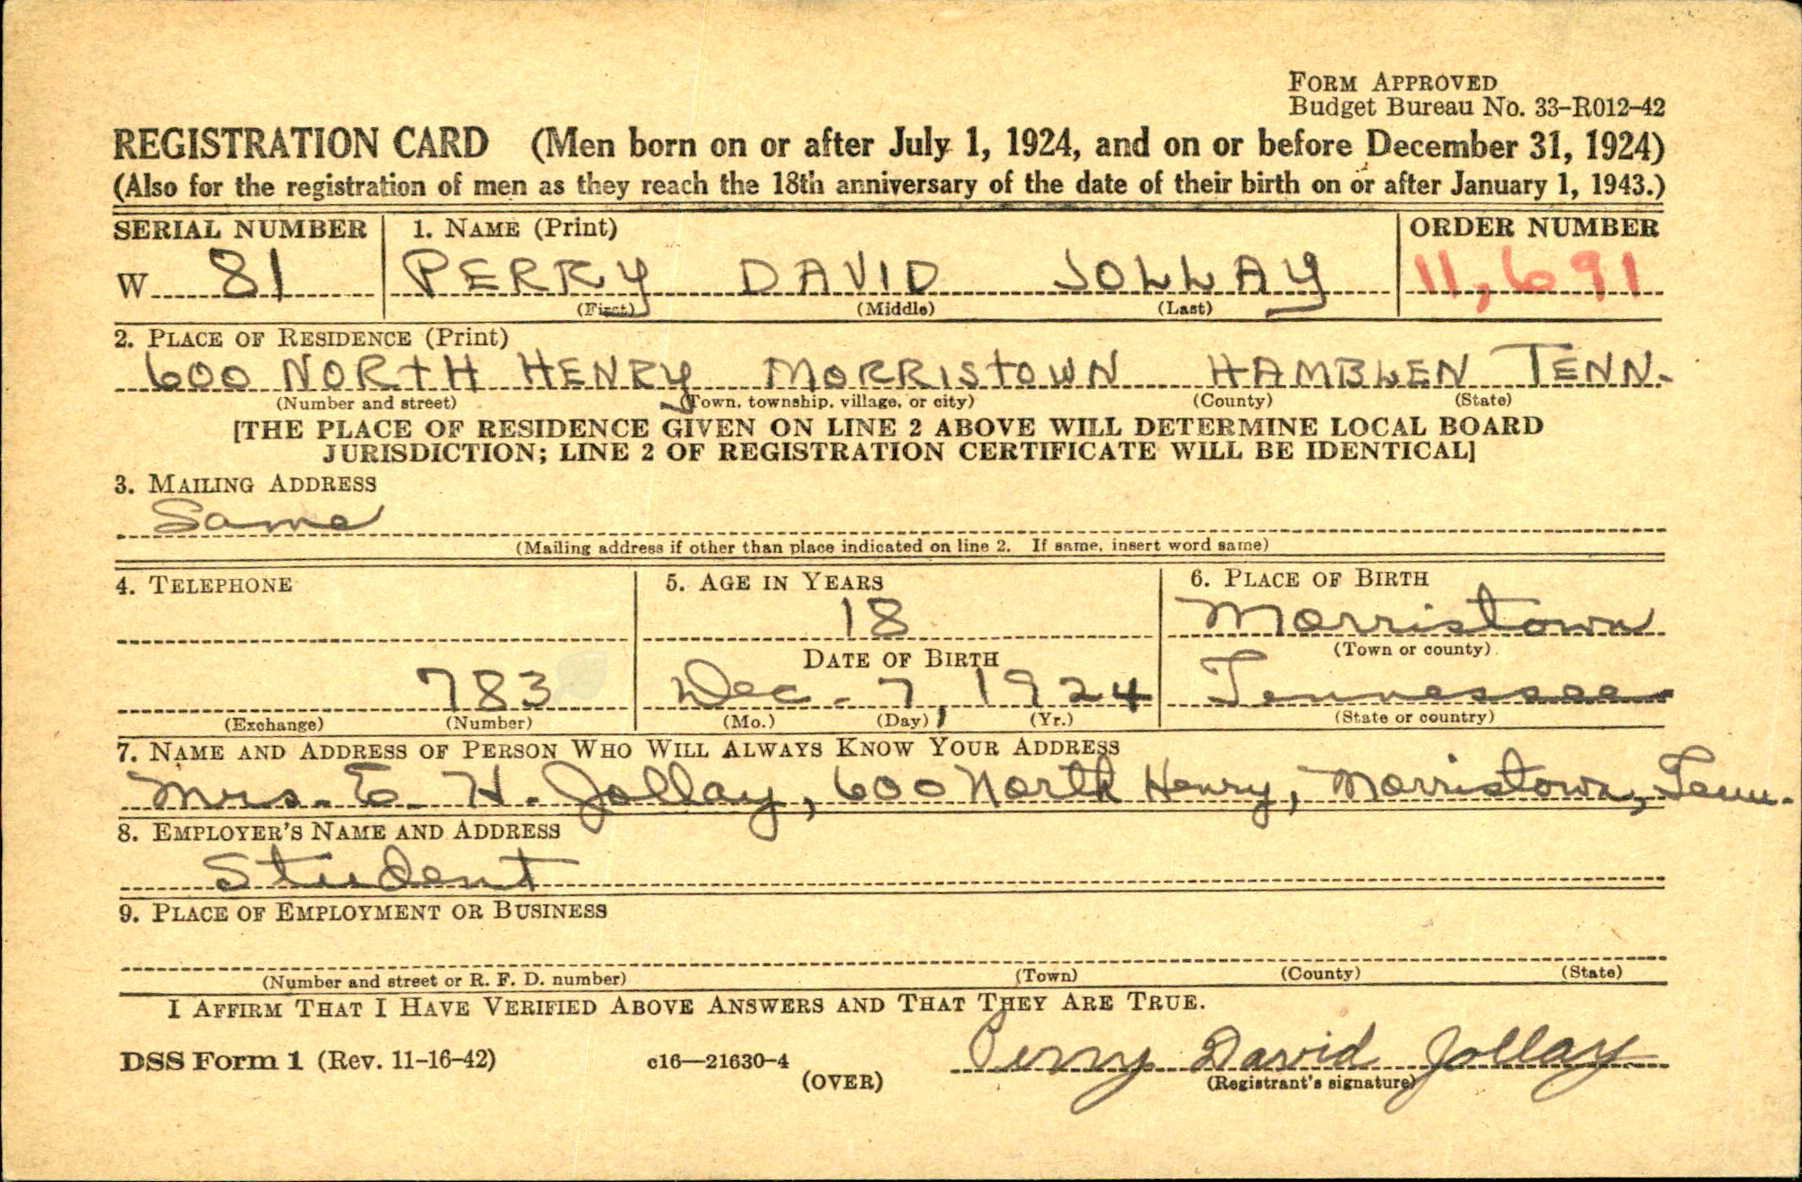 FORM APPROVED
Budget Bureau No. 33-R012-42
REGISTRATION CARD (Men born on or after July 1, 1924, and on or before December 31, 1924)
(Also for the registration of men as they reach the 18th anniversary of the date of their birth on or after January 1, 1943.)
SERIAL NUMBER 1. NAME (Print) ORDER NUMBER
W 81 PERRY DAVID JOLLAY 11,691
(First) (Middle) (Last)
2. PLACE OF RESIDENCE (Print)
600 NORTH HENRY MORRISTOWN HAMBLEN TENN.
(Number and street) (Town, township, village, or city) (County) (State)
[THE PLACE OF RESIDENCE GIVEN ON LINE 2 ABOVE WILL DETERMINE LOCAL BOARD
JURISDICTION; LINE 2 OF REGISTRATION CERTIFICATE WILL BE IDENTICAL]
3. MAILING ADDRESS
Same
(Mailing address if other than place indicated on line 2. If same, insert word same)
4. TELEPHONE 5. AGE IN YEARS 6. PLACE OF BIRTH
18 Morristown
DATE OF BIRTH (Town or county)
783 Dec. 7, 1924 Tennessee
(Exchange) (Number) (Mo.) (Day) (Yr.) (State or country)
7. NAME AND ADDRESS OF PERSON WHO WILL ALWAYS KNOW YOUR ADDRESS
Mrs. E. H. Jollay, 600 North Henry, Morristown, Tenn.
8. EMPLOYER'S NAME AND ADDRESS
Student
9. PLACE OF EMPLOYMENT OR BUSINESS
(Number and street or R. F. D. number) (Town) (County) (State)
I AFFIRM THAT I HAVE VERIFIED ABOVE ANSWERS AND THAT THEY ARE TRUE.
DSS Form 1 (Rev. 11-16-42) c16—21630-4 (OVER) Perry David Jollay
(Registrant's signature)